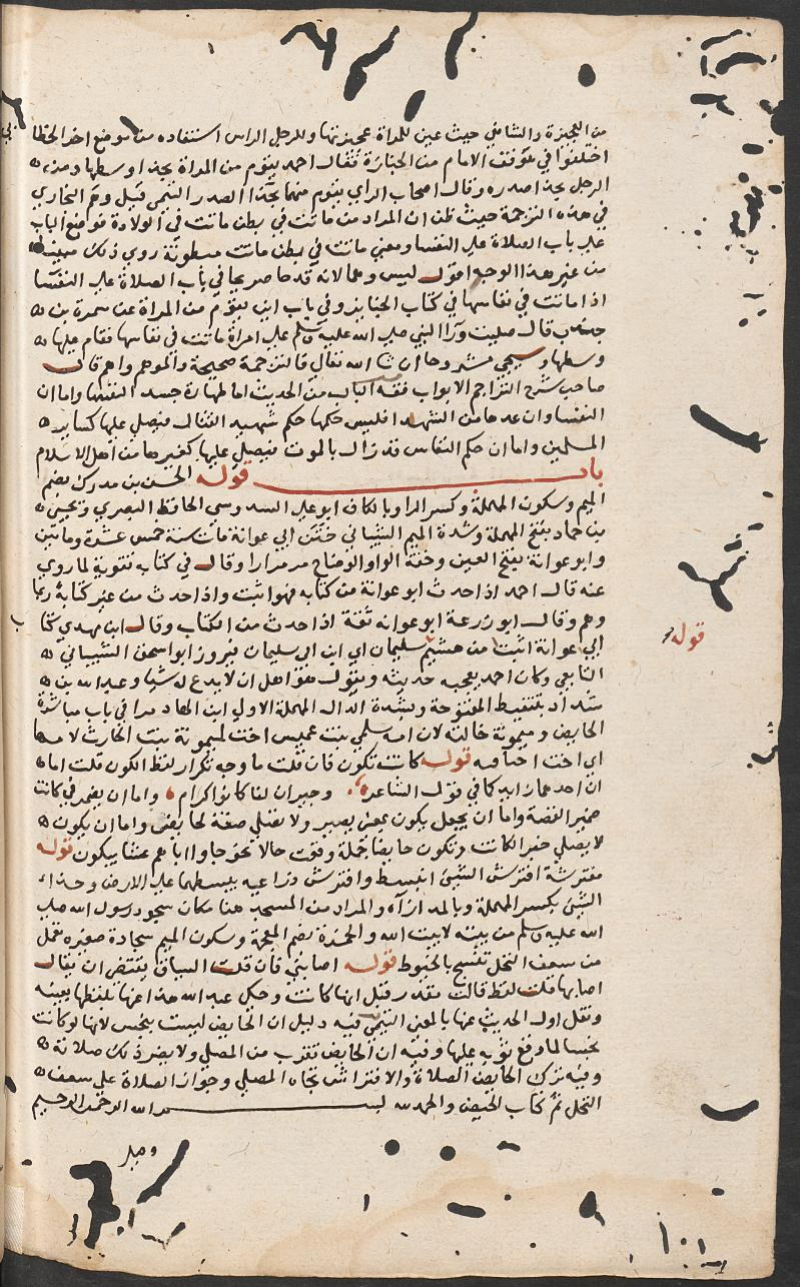 من العجيزة والشافعي حيث عين للمراة عجيزتها وللرجل الراس استفاده من موضع اخر الخطا
اختلفوا في موقف الامام من الجنازة فقال احمد يقوم من المراة بحذا وسطها ومن
الرجل بحذا صدره وقال اصحاب الراي يقوم منهما بحذا الصدر التيمي قيل وهم البخاري
في هذه الترجمة حيث ظن ان المراد من ماتت في بطن ماتت في الولادة فوضع الباب
على باب الصلاة على النفسا ومعنى ماتت في بطن ماتت مبطونة روي ذلك مبينا
من غير هذا الوجه اقول ليس وهما لانه قد جا صريحا في باب الصلاة على النفسا
اذا ماتت في نفاسها في كتاب الجنايز وفي باب اين يقوم من المراة عن سمرة بن
جندب قال صليت ورا النبي صلى الله عليه وسلم على امراة ماتت في نفاسها فقام عليها
وسطها وسيجي مشروحا ان شا الله تعالى فالترجمة صحيحة والموهم واهم قال
صاحب شرح التراجم الابواب فقه الباب من الحديث اما طهارة جسد النفسا واما ان
النفسا وان عدها من الشهدا فليس حكمها حكم شهيد القتال فيصلي عليها كساير
المسلمين واما ان حكم النفاس قد زال بالموت فيصلي عليها كغيرها من اهل الاسلام
باب قوله الحسن بن مدرك بضم
الميم وسكون المهملة وكسر الرا وبالكاف ابو علي السدوسي الحافظ البصري ويحيى
بن حماد بفتح المهملة وشدة الميم الشيباني ختن ابي عوانة مات سنة خمس عشرة ومايتين
وابو عوانة بفتح العين وخفة الواو الوضاح مر مرارا وقال في كتابه تقوية لما روي
عنه قال احمد اذا حدث ابو عوانة من كتابه فهو اثبت واذا حدث من غير كتابة ربما
وهم وقال ابو زرعة ابو عوانه ثقة اذا حدث من الكتاب وقال ابن مهدي كتاب
ابي عوانة اثبت من هشيم سليمان اي ابن ابي سليمان فيروز ابو اسحق الشيباني
قوله
التابعي وكان احمد يعجبه حديثه ويقول هو اهل ان لا يدع له شيا وعبد الله بن
شداد بتنقيط المفتوحة وبشدة الدال المهملة الاولى ابن الهاد مرا في باب مباشرة
الحايض وميمونة خالته لان امه سلمى بنت عميس اخت لميمونة بنت الحارث لامها
اي اخت اخيافيه قوله كانت تكون فان قلت ما وجه تكرار لفظ الكون قلت اما
ان احدهما زايد كما في قول الشاعر وجيران لنا كانوا كرام واما ان يضمر في كانت
ضمير القصة واما ان يجعل يكون بمعنى يصير ولا تصلي صفة لحايض واما ان يكون
لا يصلي خبر لكانت وتكون حايضا جملة وقعت حالا نحو جاوا اباهم عشا يبكون قوله
مفترشة افترش الشي انبسط وافترش ذراعيه بسطهما على الارض وحذاء
الشي بكسر المهملة وبالمد ازآءه والمراد من المسجد هنا مكان سجود رسول الله صلى
الله عليه وسلم من بيته لا بيت الله والخمرة بضم المعجمة وسكون الميم سجادة صغيره تعمل
من سعف النخل تنسج بالخيوط قوله اصابني فان قلت السياق يقتضي ان يقال
اصابها قلت لفظ قالت مقدر قبل انها كانت وحكى عبد الله هذا عنها بلفظها بعينه
ونقل اول الحديث عنها بالمعنى التيمي فيه دليل ان الحايض ليست بنجس لانها لو كانت
نجسا لما وقع ثوبه عليها وفيه ان الحايض تقرب من المصلي ولا يضر ذلك صلاته
وفيه ترك الحايض الصلاة والافتراش تجاه المصلي وجواز الصلاة على سعف
النخل تم كتاب الحيض والحمد لله بسم الله الرحمن الرحيم
وصلى